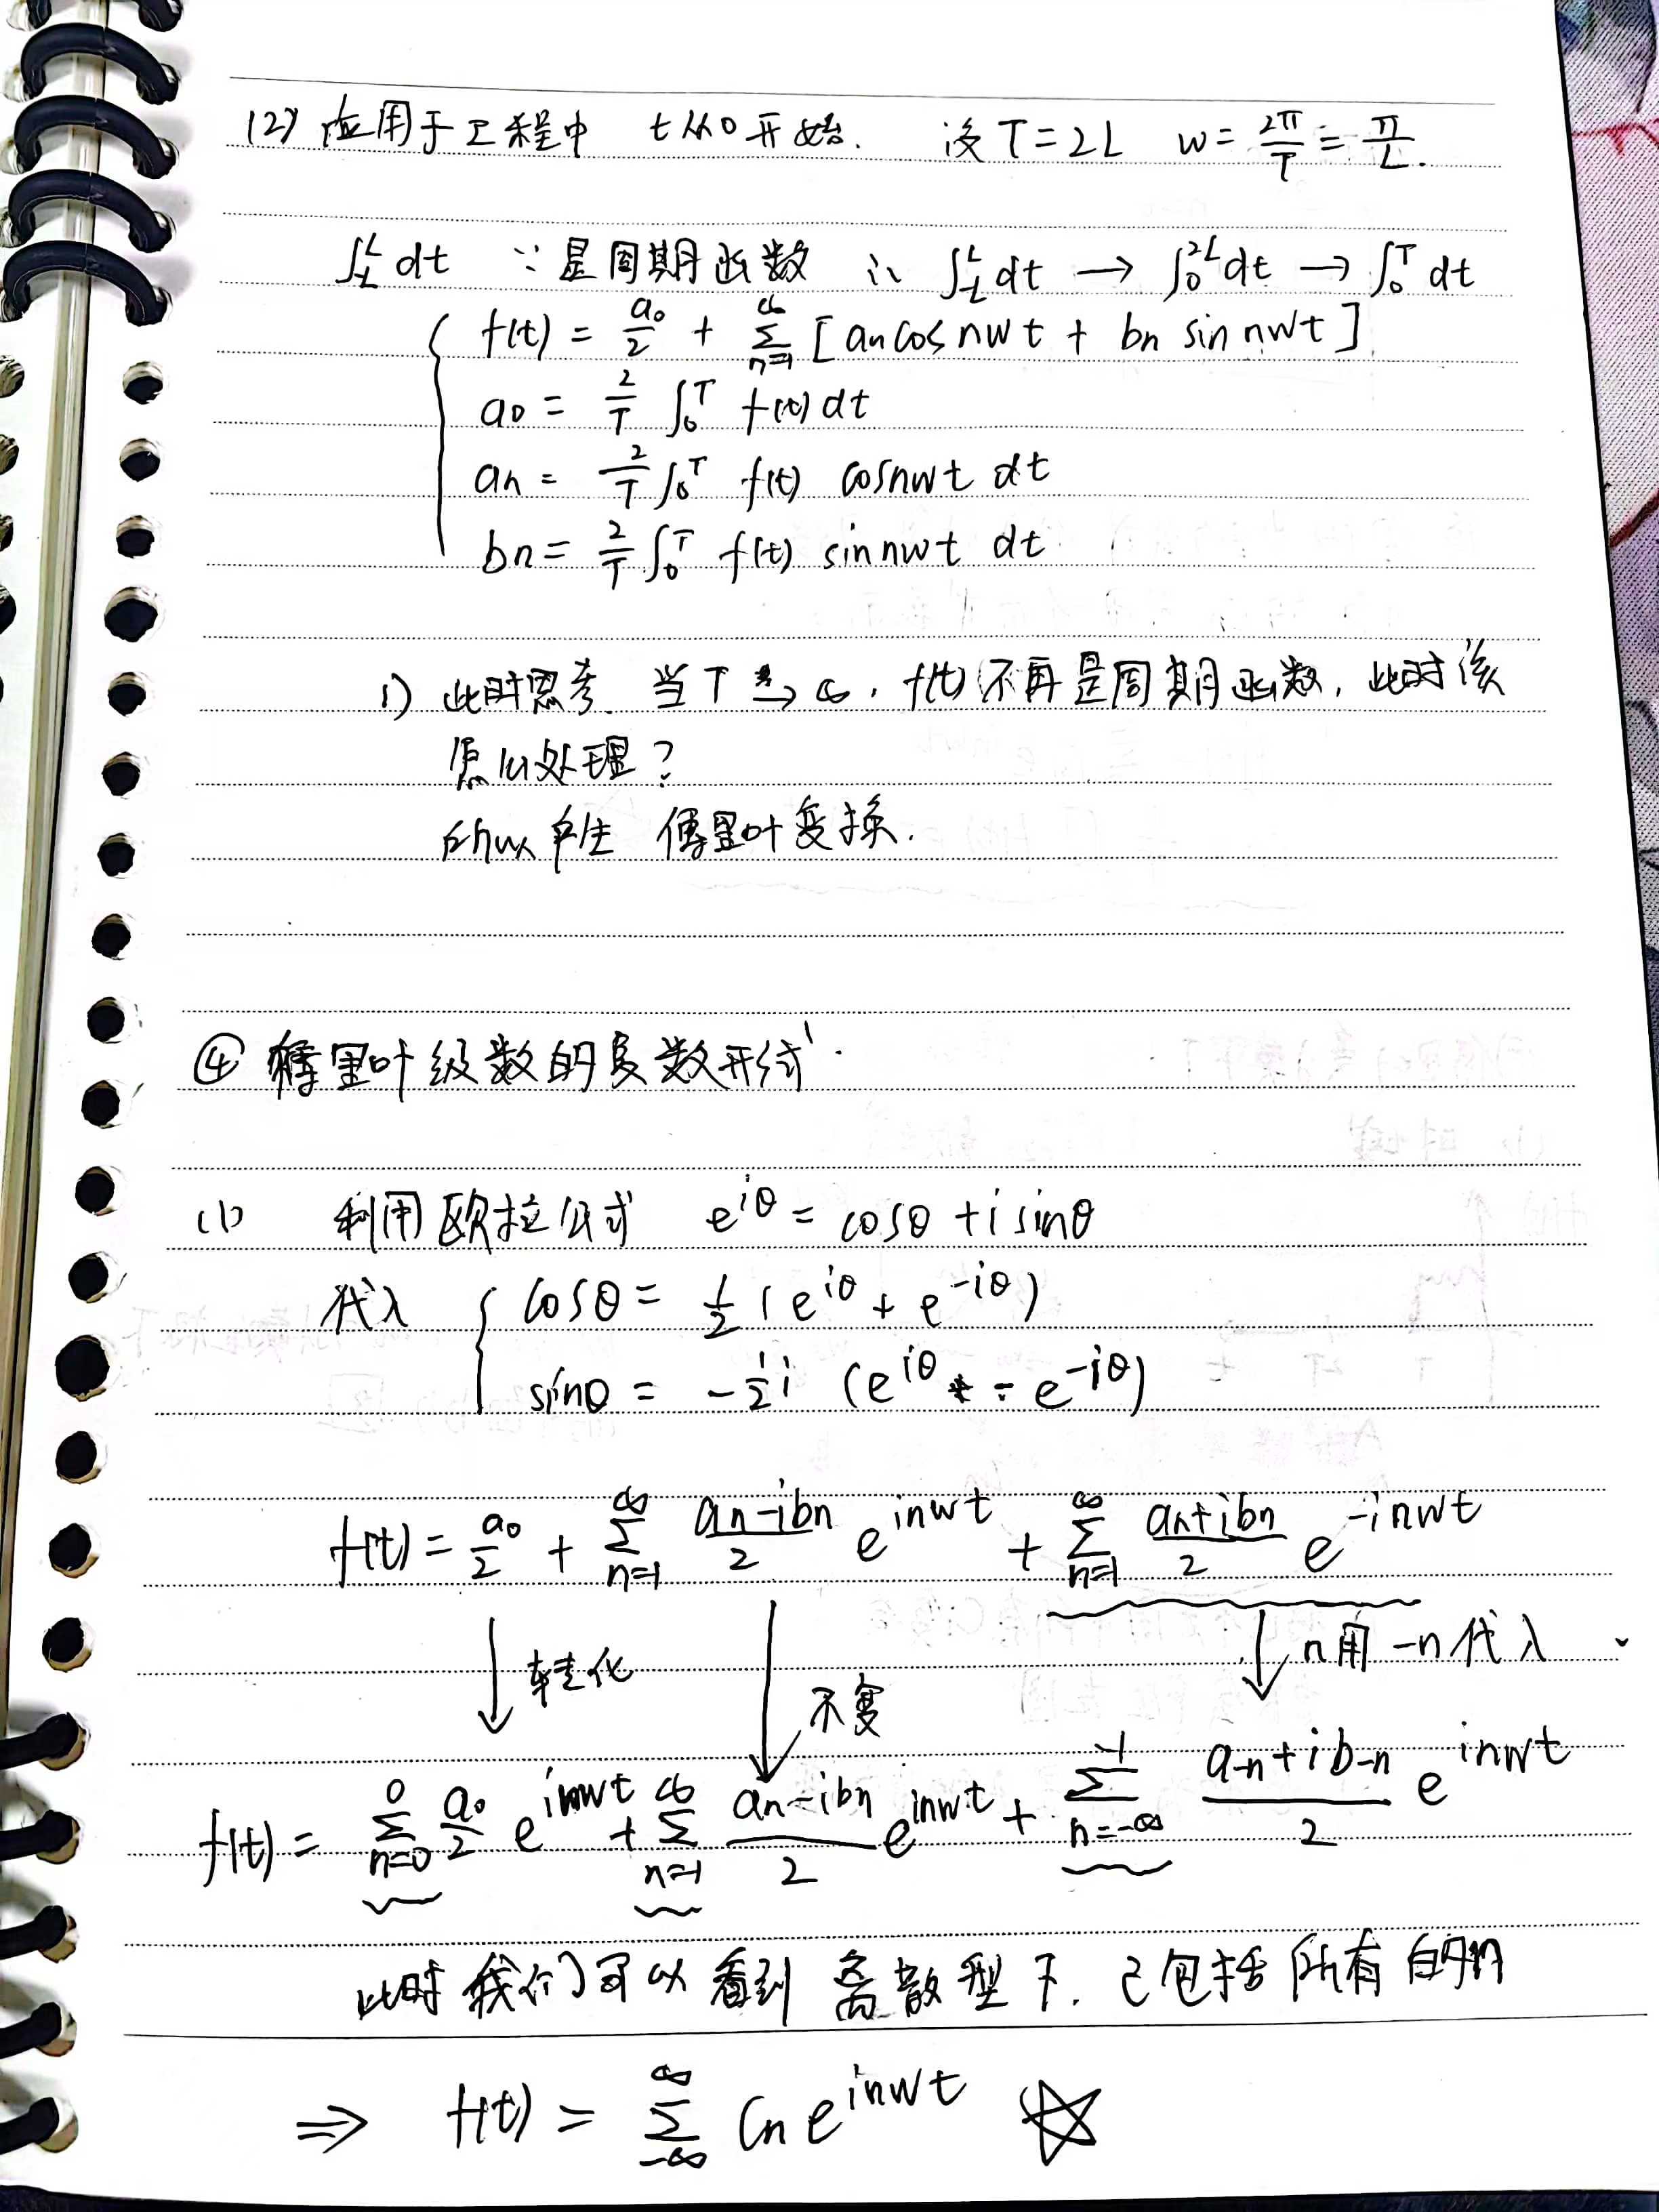 (2) 应用于工程中 t从0开始. 设 T=2L w=2π/T=π/L.
∫_{-L}^{L} dt ∵是周期函数 ∴ ∫_{-L}^{L} dt → ∫_0^{2L} dt → ∫_0^T dt
f(t) = a0/2 + Σ_{n=1}^{∞} [an cos nwt + bn sin nwt]
a0 = 2/T ∫_0^T f(t) dt
an = 2/T ∫_0^T f(t) cosnwt dt
bn = 2/T ∫_0^T f(t) sinnwt dt
1) 此时思考. 当 T → ∞, f(t)不再是周期函数, 此时该
怎么处理?
所以产生 傅里叶变换.
④ 傅里叶级数的复数形式.
(1) 利用欧拉公式 e^{iθ} = cosθ + i sinθ
代入 { cosθ = 1/2 (e^{iθ} + e^{-iθ})
sinθ = -1/2 i (e^{iθ} - e^{-iθ})
f(t) = a0/2 + Σ_{n=1}^{∞} (an-ibn)/2 e^{inwt} + Σ_{n=1}^{∞} (an+ibn)/2 e^{-inwt}
↓转化 ↓不变 ↓n用 -n代入
f(t) = Σ_{n=0}^{0} a0/2 e^{inwt} + Σ_{n=1}^{∞} (an-ibn)/2 e^{inwt} + Σ_{n=-∞}^{-1} (a-n+ib-n)/2 e^{inwt}
此时我们可以看到 离散型下. 已包括所有的n
⇒ f(t) = Σ_{-∞}^{∞} Cn e^{inwt} ☆